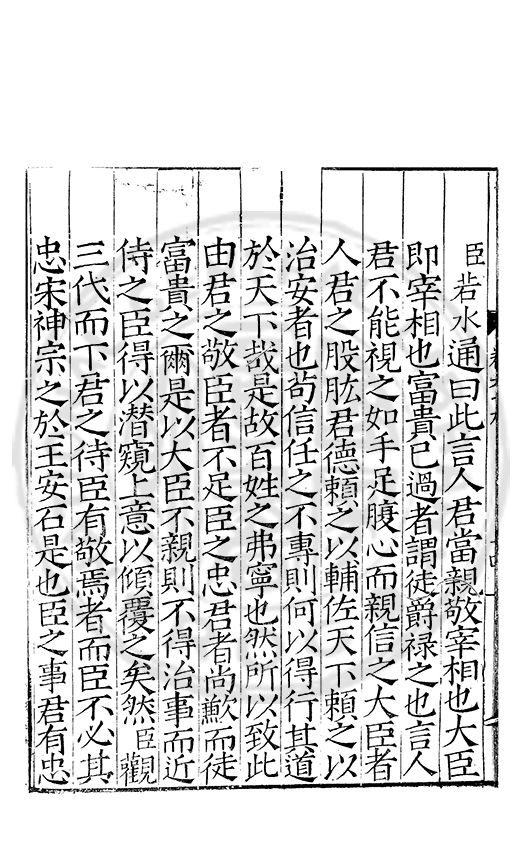 臣若水通曰此言人君當親敬宰相也大臣
即宰相也富貴已過者謂徒爵禄之也言人
君不能視之如手足腹心而親信之大臣者
人君之股肱君德賴之以輔佐天下賴之以
治安者也苟信任之不專則何以得行其道
於天下哉是故百姓之弗寧也然所以致此
由君之敬臣者不足臣之忠君者尚歉而徒
富貴之爾是以大臣不親則不得治事而近
侍之臣得以潛窺上意以傾覆之矣然臣觀
三代而下君之待臣有敬焉者而臣不必其
忠宋神宗之於王安石是也臣之事君有忠